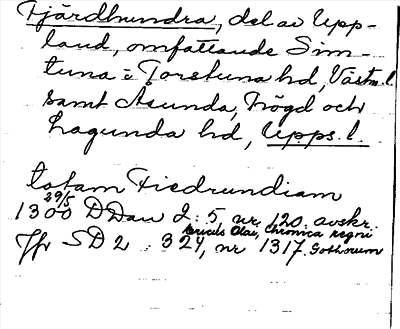 Fjärdhundra, del av Upp-
land, omfattande Sim-
tuna i Torstuna hd, Västm.l.
samt Åsunda, Trögd och
Lagunda hd, Upps. l.
totam Fiedrundiam
29/5
1300 DDan 2: 5, nr. 120. avskr.
Ericus Olai, Chronica regni
Jfr SD 2 : 324, nr 1317. Gothorum